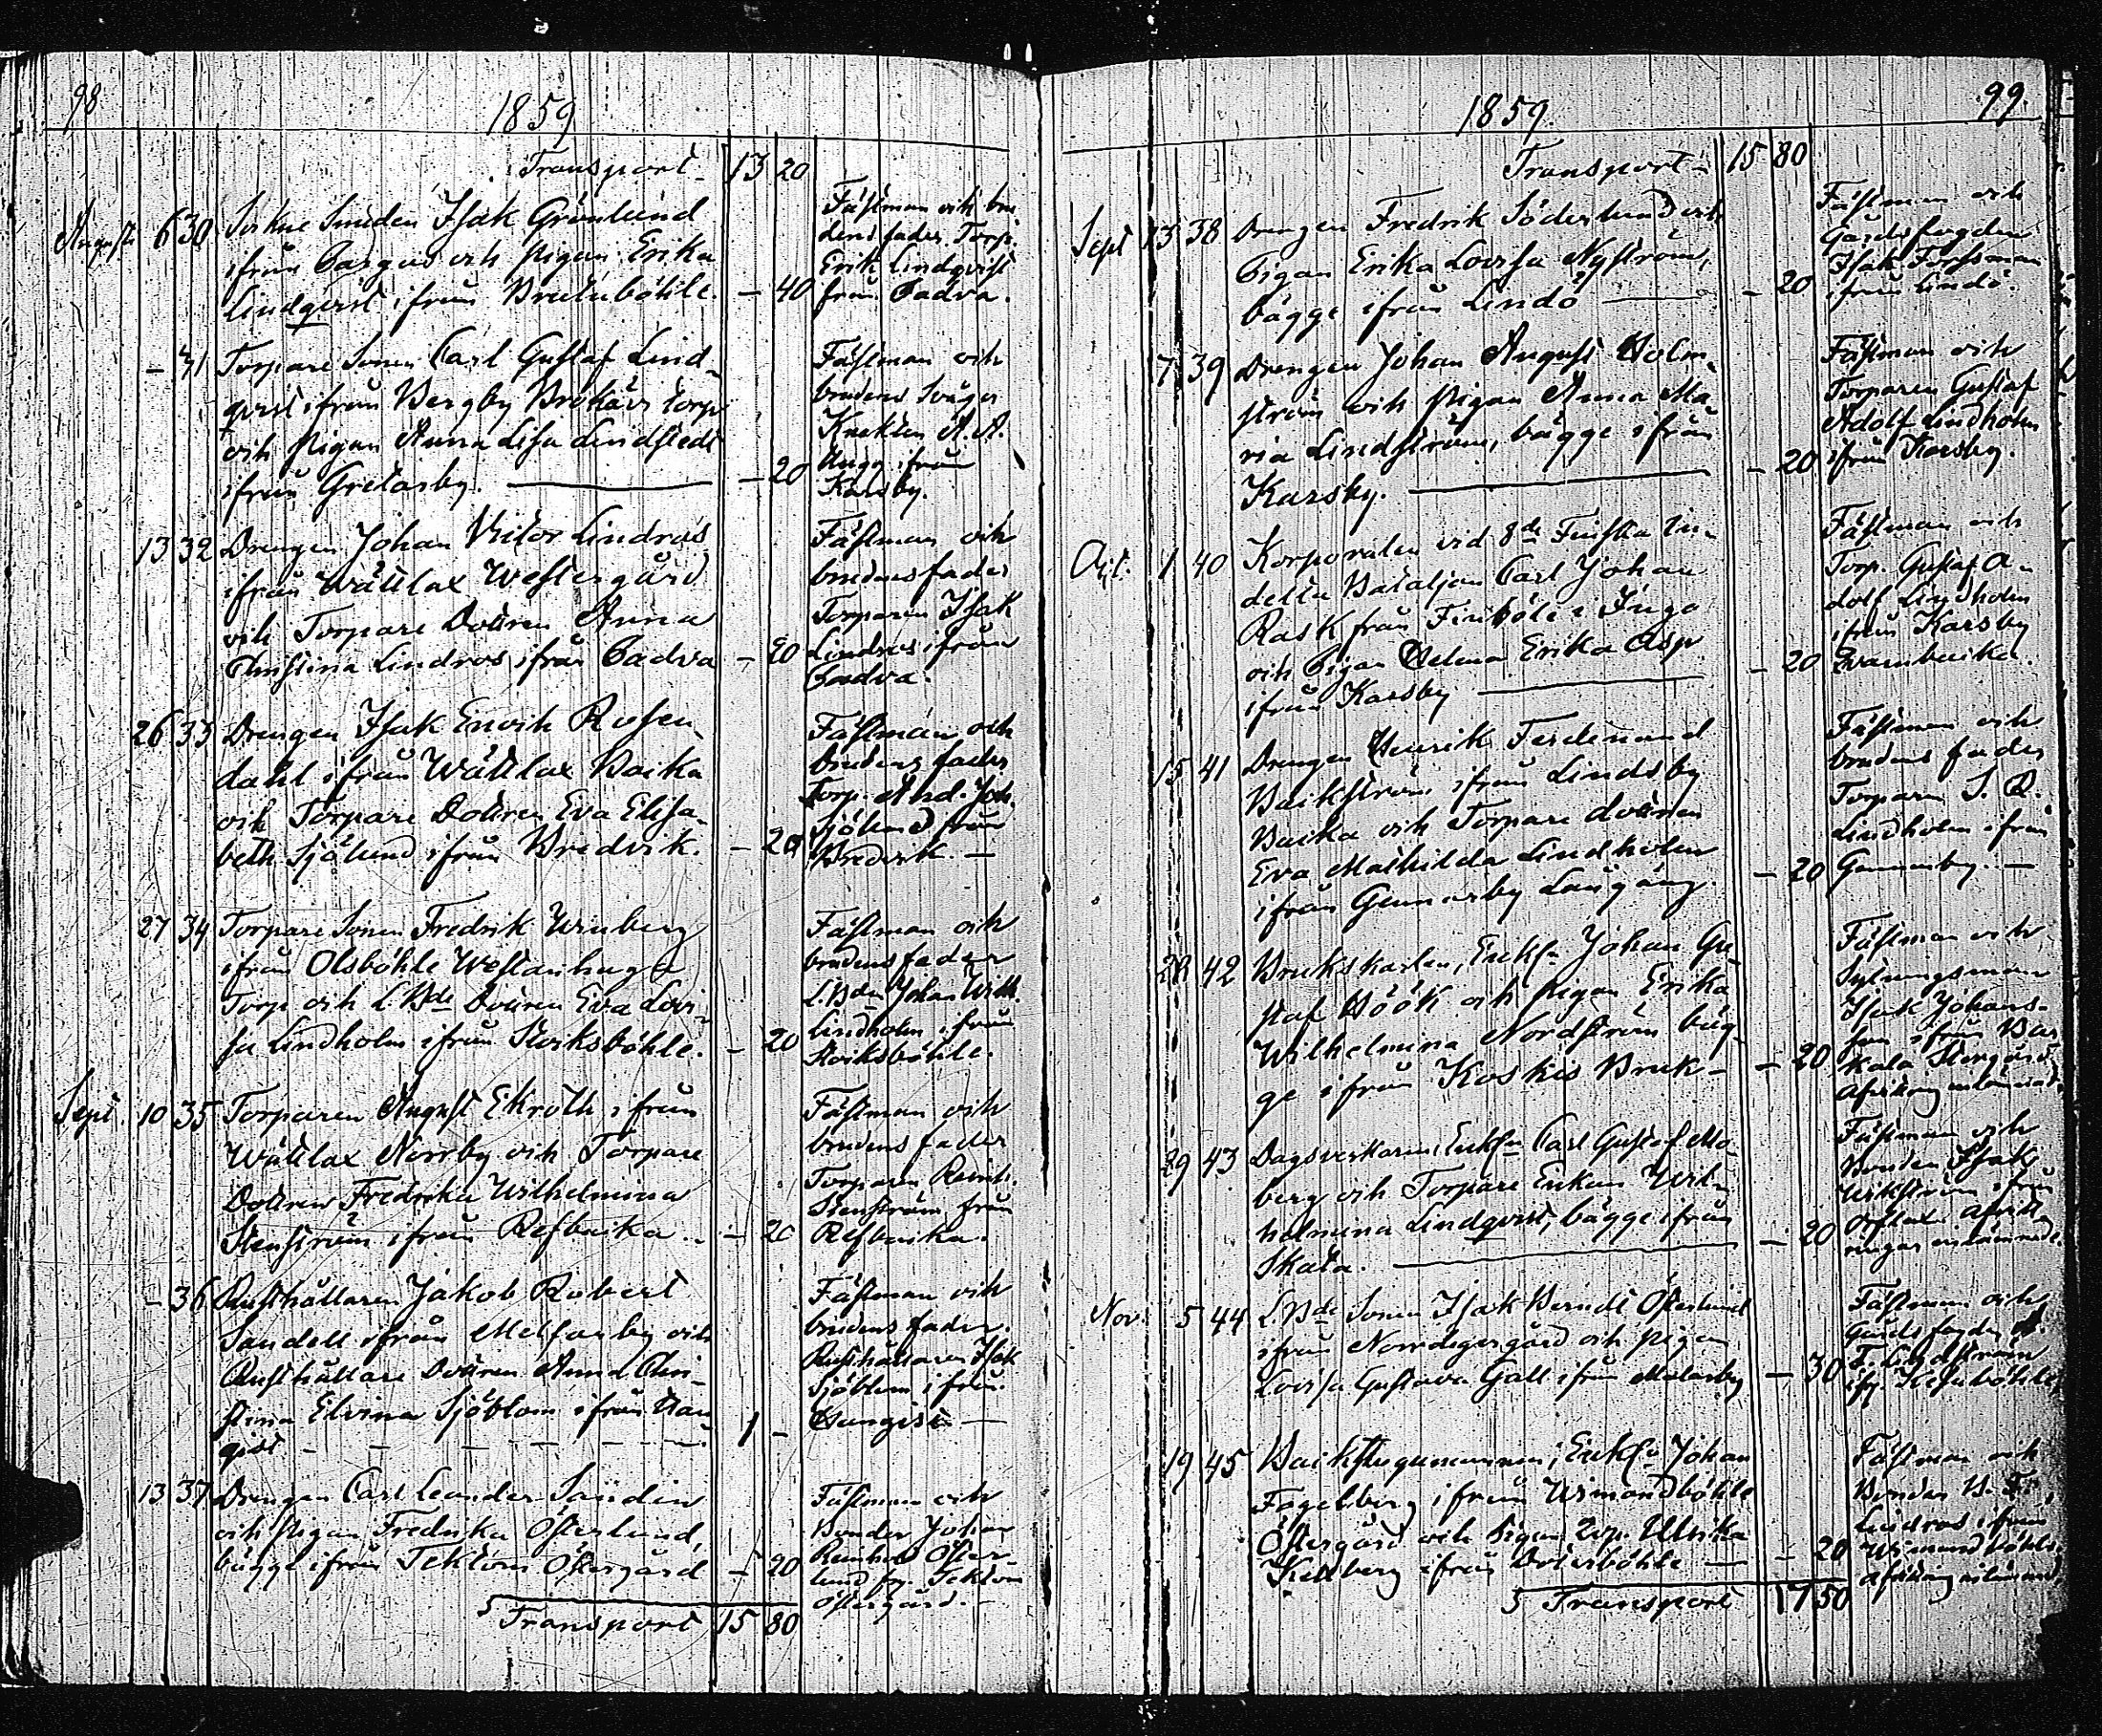 98
1859
Transport 13 20
Augusti 6 30 Sockne Smeden Isak Grönlund
ifrån Pargas och pigan Erika
Lindqvist ifrån Brutuböhle. – 40
Fästman och bru-
dens fader Torp.
Erik Lindqvist
från Padva.
– 31 Torpare Sonen Carl Gustaf Lind-
qvist ifrån Bergby Brokärs torp
och pigan Anna Lisa Lindstedt
ifrån Gretarby. – 20
Fästman och
brudens Svåger
Knekten A. A.
ifrån
Karsby.
13 32 Drengen Johan Victor Lindros
ifrån Wättlax Westergård
och Torpare Dottren Anna
Christina Lindros ifrån Padva – 20
Fästman och
brudens fader
Torparen Isak
Lindros ifrån
Padva.
26 33 Drengen Isak Enoch Rosen-
dahl ifrån Wättlax Backa
och Torpare Dottren Eva Elisa-
beth Sjölund ifrån Bredvik. – 20
Fästman och
brudens fader
Torp. And. Joh.
Sjölund från
Bredvik. –
27 34 Torpare Sonen Fredrik Winberg
ifrån Olsböhle Westanhage
Torp och L.Bde Dottren Eva Lovi-
sa Lindholm ifrån Starksböhle. – 20
Fästman och
brudens fader
L.Bden Johan Wilh.
Lindholm ifrån
Starksböhle.
Sept. 10 35 Torparen August Ekroth ifrån
Wättlax Norrby och Torpare
Dottren Fredrika Wilhelmina
Stenström ifrån Refbacka. – 20
Fästman och
brudens fader
Torparen Reinh.
Stenström från
Refbacka.
– 36 Rusthållaren Jakob Robert
Sandell ifrån Melfarby och
Rusthållare Dottren Anna Chri-
stina Elvina Sjöblom ifrån Han-
gist – – – – – 1 –
Fästman och
brudens fader.
Rusthållaren Isak
Sjöblom ifrån.
Hangist –
13 37 Drengen Carl Leander Sandin
och pigan Fredrika Österlund,
bägge ifrån Tektom Östergård – 20
Fästman och
Bonden Johan
Reinhold Öster-
lund fr. Tektom
Östergård. –
Transport 15 80
99.
1859.
Transport 15 80
Sept 13 38 Drengen Fredrik Söderlund och
Pigan Erika Lovisa Nyström,
bägge ifrån Lindö – 20
Fästman och
Gårdsfogden
Isak Forssman
ifrån Lindö.
17 39 Drengen Johan August Holm-
ström och pigan Anna Ma-
ria Lindström, bägge ifrån
Karsby. – 20
Fästman och
Torparen Gustaf
Adolf Lindholm
ifrån Karsby.
Oct. 1 40 Korporalen vid 8de Finska In-
delta Bataljon Carl Johan
Rask från Finböle i Ingo
och Pigan Helena Erika Asp
ifrån Karsby – 20
Fästman och
Torp. Gustaf A-
dolf Lindholm
ifrån Karsby
Qvarnbacka.
15 41 Drengen Henrik Ferdinand
Backström ifrån Lindsby
Backa och Torpare dottren
Eva Mathilda Lindholm
ifrån Gennarby Långäng. – 20
Fästman och
brudens fader
Torparen
Lindholm ifrån
Gennarby. –
28 42 Brukskarlen, Enkl. Johan Gu-
staf Höök och pigan Erika
Wilhelmina Nordström bäg-
ge ifrån Koskis Bruk – – 20
Fästman och
Isak Johans-
son ifrån
Storgård
29 43 Dagsverkaren, Enkl. Carl Gustaf Mo-
berg och Torpare Enkan Wil-
helmina Lindqvist, bägge ifrån
Skata. – 20
Fästman och
Bonden Isak
Wikström ifrån
Nov. 5 44 L.Bde Sonen Isak Berndt Österlund
ifrån Norrdegergård och pigan
Lovisa Gustava Gall ifrån Malarby – 30
Fästman och
Gårdsfogden
Lindström
19 45 Enkl. Johan
Fagelberg ifrån Wimondböhle
Östergård och Pigan Ulrika
ifrån – 20
Fästman och
Bonden
Lindros ifrån
Wimondböhle
Transport 17 50